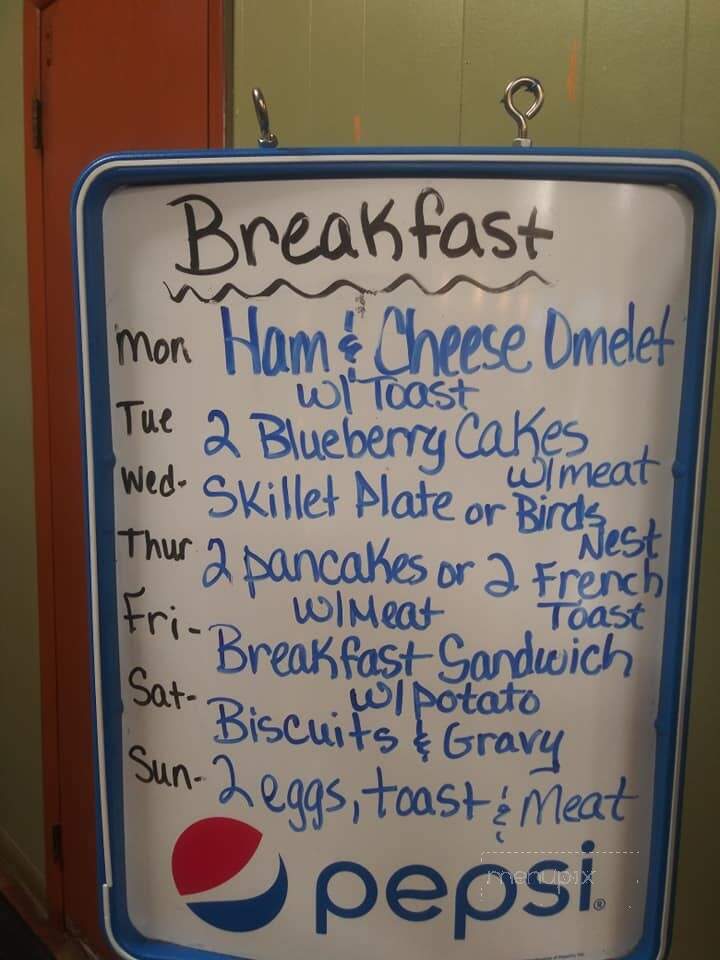 Breakfast
Mon Ham & Cheese Omelet
w/ Toast
Tue 2 Blueberry Cakes
w/meat
Wed- Skillet Plate or Birds
Nest
Thur 2 pancakes or 2 French
w/Meat Toast
Fri- Breakfast Sandwich
w/potato
Sat- Biscuits & Gravy
Sun- 2 eggs, toast & Meat
pepsi®
menupix